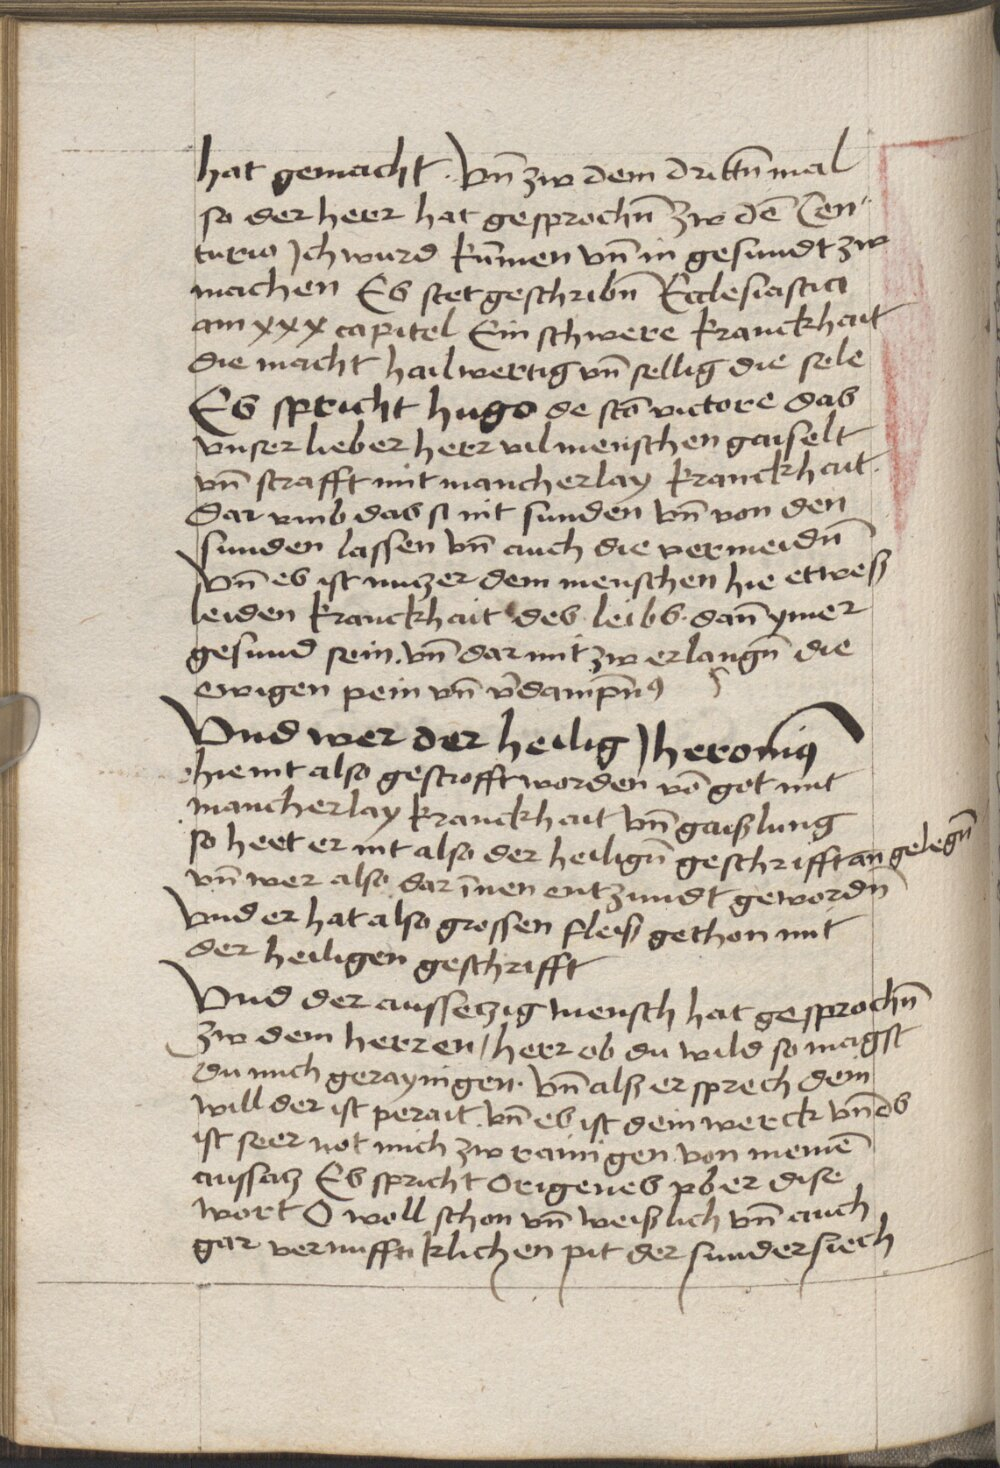 hat gemacht. Vn̄ zw dem dritt̄n mal
so der heer hat gesproch̄n zw dē Cen-
turio Ich wurd kūmen vn̄ in gesundt zw
machen Es stet geschribn̄ Ecclesiastici
am xxx capitel Ein schwere kranckhait
die macht hailwertig vn̄ sellig die sele
Es spricht hugo de sc̄o victore das
vnser lieber herr vil menschen gaiselt
vn̄ strafft mit mancherlay kranckhait.
dar vmb das si nit sunden vn̄ von den
sunden lassen vn̄ auch die vermeidn̄
Vn̄ es ist nuczer dem menschen hie etweß
leiden kranckhait des leibs. dan̄ ymer
gesund sein. vn̄ dar mit zw erlangn̄ die
ewigen pein vn̄ v̄dampnꝰ
Vnd wer der heilig Iheronimꝰ
hie nit also gestrofft worden vō got mit
mancherlay kranckhait vn̄ gaißlung
so heet er nit also der heilign̄ geschrifft an gelegn̄
vn̄ wer also dar īnen entzundt gewordn̄
Vnd er hat also grossen fleiß gethon mit
der heiligen geschrifft
Vnd der aussetzig mensch hat gesprochn̄
zw dem herren / herr ob du wild so magst
du mich gerayingen. Vn̄ alß er sprech dein
will der ist perait. vn̄ es ist dein werck vn̄ ds
ist seer not mich zw rainigen von meinē
aussatz Es spricht Origenes vber dise
wort O woll schon vn̄ weißlich vn̄ auch
gar vernufftiklichen pit der sundersiech